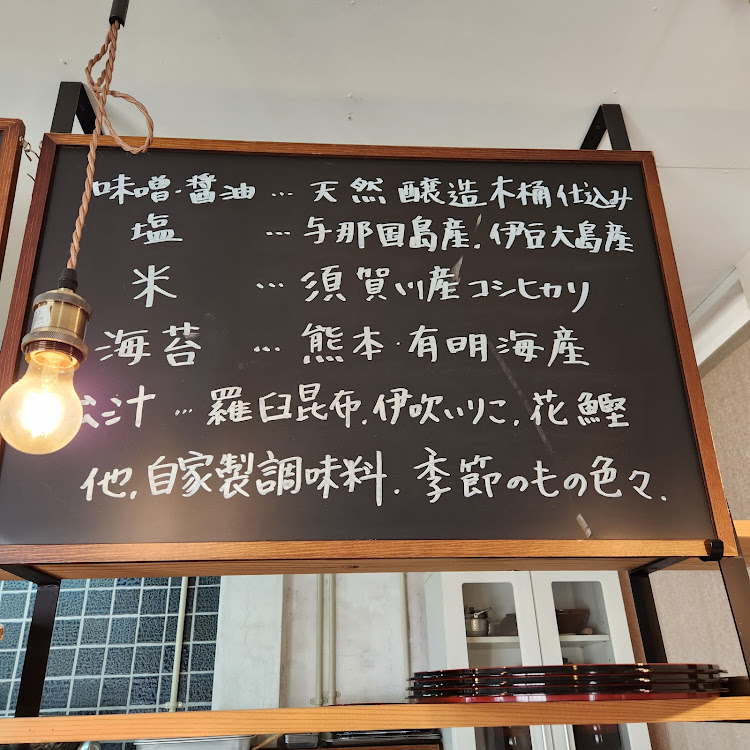 味噌・醤油 … 天然醸造木桶仕込み
塩 … 与那国島産.伊豆大島産
米 … 須賀川産コシヒカリ
海苔 … 熊本・有明海産
汁 … 羅臼昆布.伊吹いりこ.花鰹
他.自家製調味料.季節のもの色々.